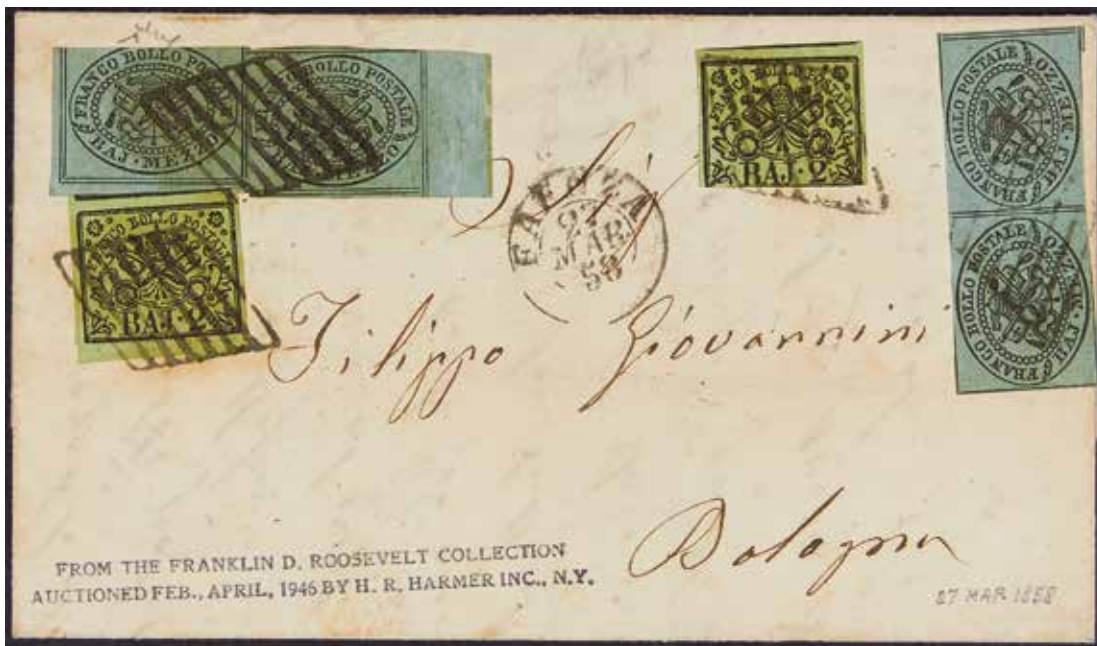 FRANCO BOLLO POSTALE
BAJ·MEZZO
FRANCO BOLLO POSTALE
BAJ·MEZZO
FRANCO BOLLO POSTALE
BAJ·2
FRANCO BOLLO POSTALE
BAJ·2
FRANCO BOLLO POSTALE
BAJ·MEZZO
FRANCO BOLLO POSTALE
BAJ·MEZZO
27
MAR
58
Filippo Giovannini
Bologna
FROM THE FRANKLIN D. ROOSEVELT COLLECTION
AUCTIONED FEB., APRIL, 1946 BY H. R. HARMER INC., N.Y.
27 MAR 1858